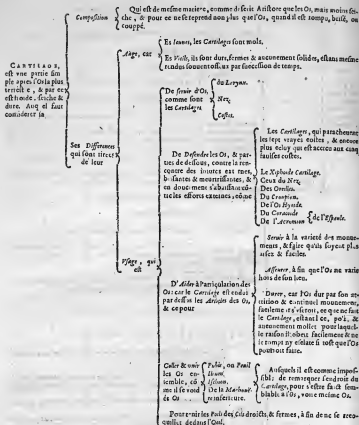 Composition
Qui est de mesme matiere, comme descrit Aristote que les Os, mais moins sei-
che, & pour ce ne se reprend non plus que l'Os, quand il est rompu, brisé, ou
couppé.
CARTILAGE,
est vne partie sim
ple apres l'Os la plus
terrestre, & par ce
est froide, seiche &
dure. Auquel faut
considerer sa
Ses Differences
qui sont tirees
de leur
Aage, car
Es Ieunes, les Cartilages sont mols.
Es Vieils, ils sont durs, fermes & aucunement solides, estans mesme
rendus par succession de temps.
Vsage, qui
est
De seruir d'Os,
comme sont
les Cartilages
du Larynx.
Nez.
Costes.
De Defendre les Os, & par-
ties de dessous, contre la ren-
contre des iniures externes,
brisantes & meurtrissantes, &
en doucement s'abaissant cô-
tre les efforts externes, côme
Les Cartilages, qui paracheuent
les sept vrayes costes, & encore
plus celuy qui est aux cinq
faulses costes.
Le Xiphoide Cartilage.
Ceux du Nez.
Des Oreilles.
Du Croupion.
De l'Os Hyoide.
Du Coracoide
De l'Acromion
de l'Espaule.
D'Aider à l'articulation des
Os: car le Cartilage est enduit
par dessus les Articles des Os,
& ce pour
Seruir à la varieté des mouue-
ments, & faire qu'ils soyent plus
aisez & faciles.
Asseurer, à fin que l'Os ne varie
hors de son lieu.
Durer, car l'Os dur par son at-
trition & continuel mouuement,
facilement s'vseroit, ce que ne fait
le Cartilage, estant lent, poli, &
aucunement mollet pour laquel-
le raison il obeit facilement & ne
se rompt ny esclate si tost que l'Os
pourroit faire.
Coller & vnir
les Os en-
semble, cô
me il se void
és Os
Pubis, ou Penil
Ilium.
Ischium.
De la Marchoire
inferieure.
Ausquels il est comme impos-
sible de remarquer l'endroit du
Cartilage, pour s'estre fait sem-
blable à l'Os, voire mesme Os.
Pour tenir les Poils des Cils droicts & fermes, à fin de ne se reco-
quiller dedans l'Oeil.